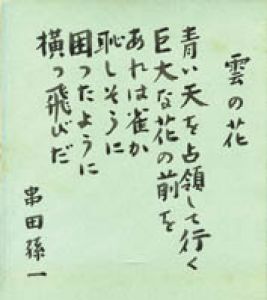 雲の花
青い天を占領して行く
巨大な花の前を
あれは雀か
恥しそうに
困ったように
横っ飛びだ
串田孫一